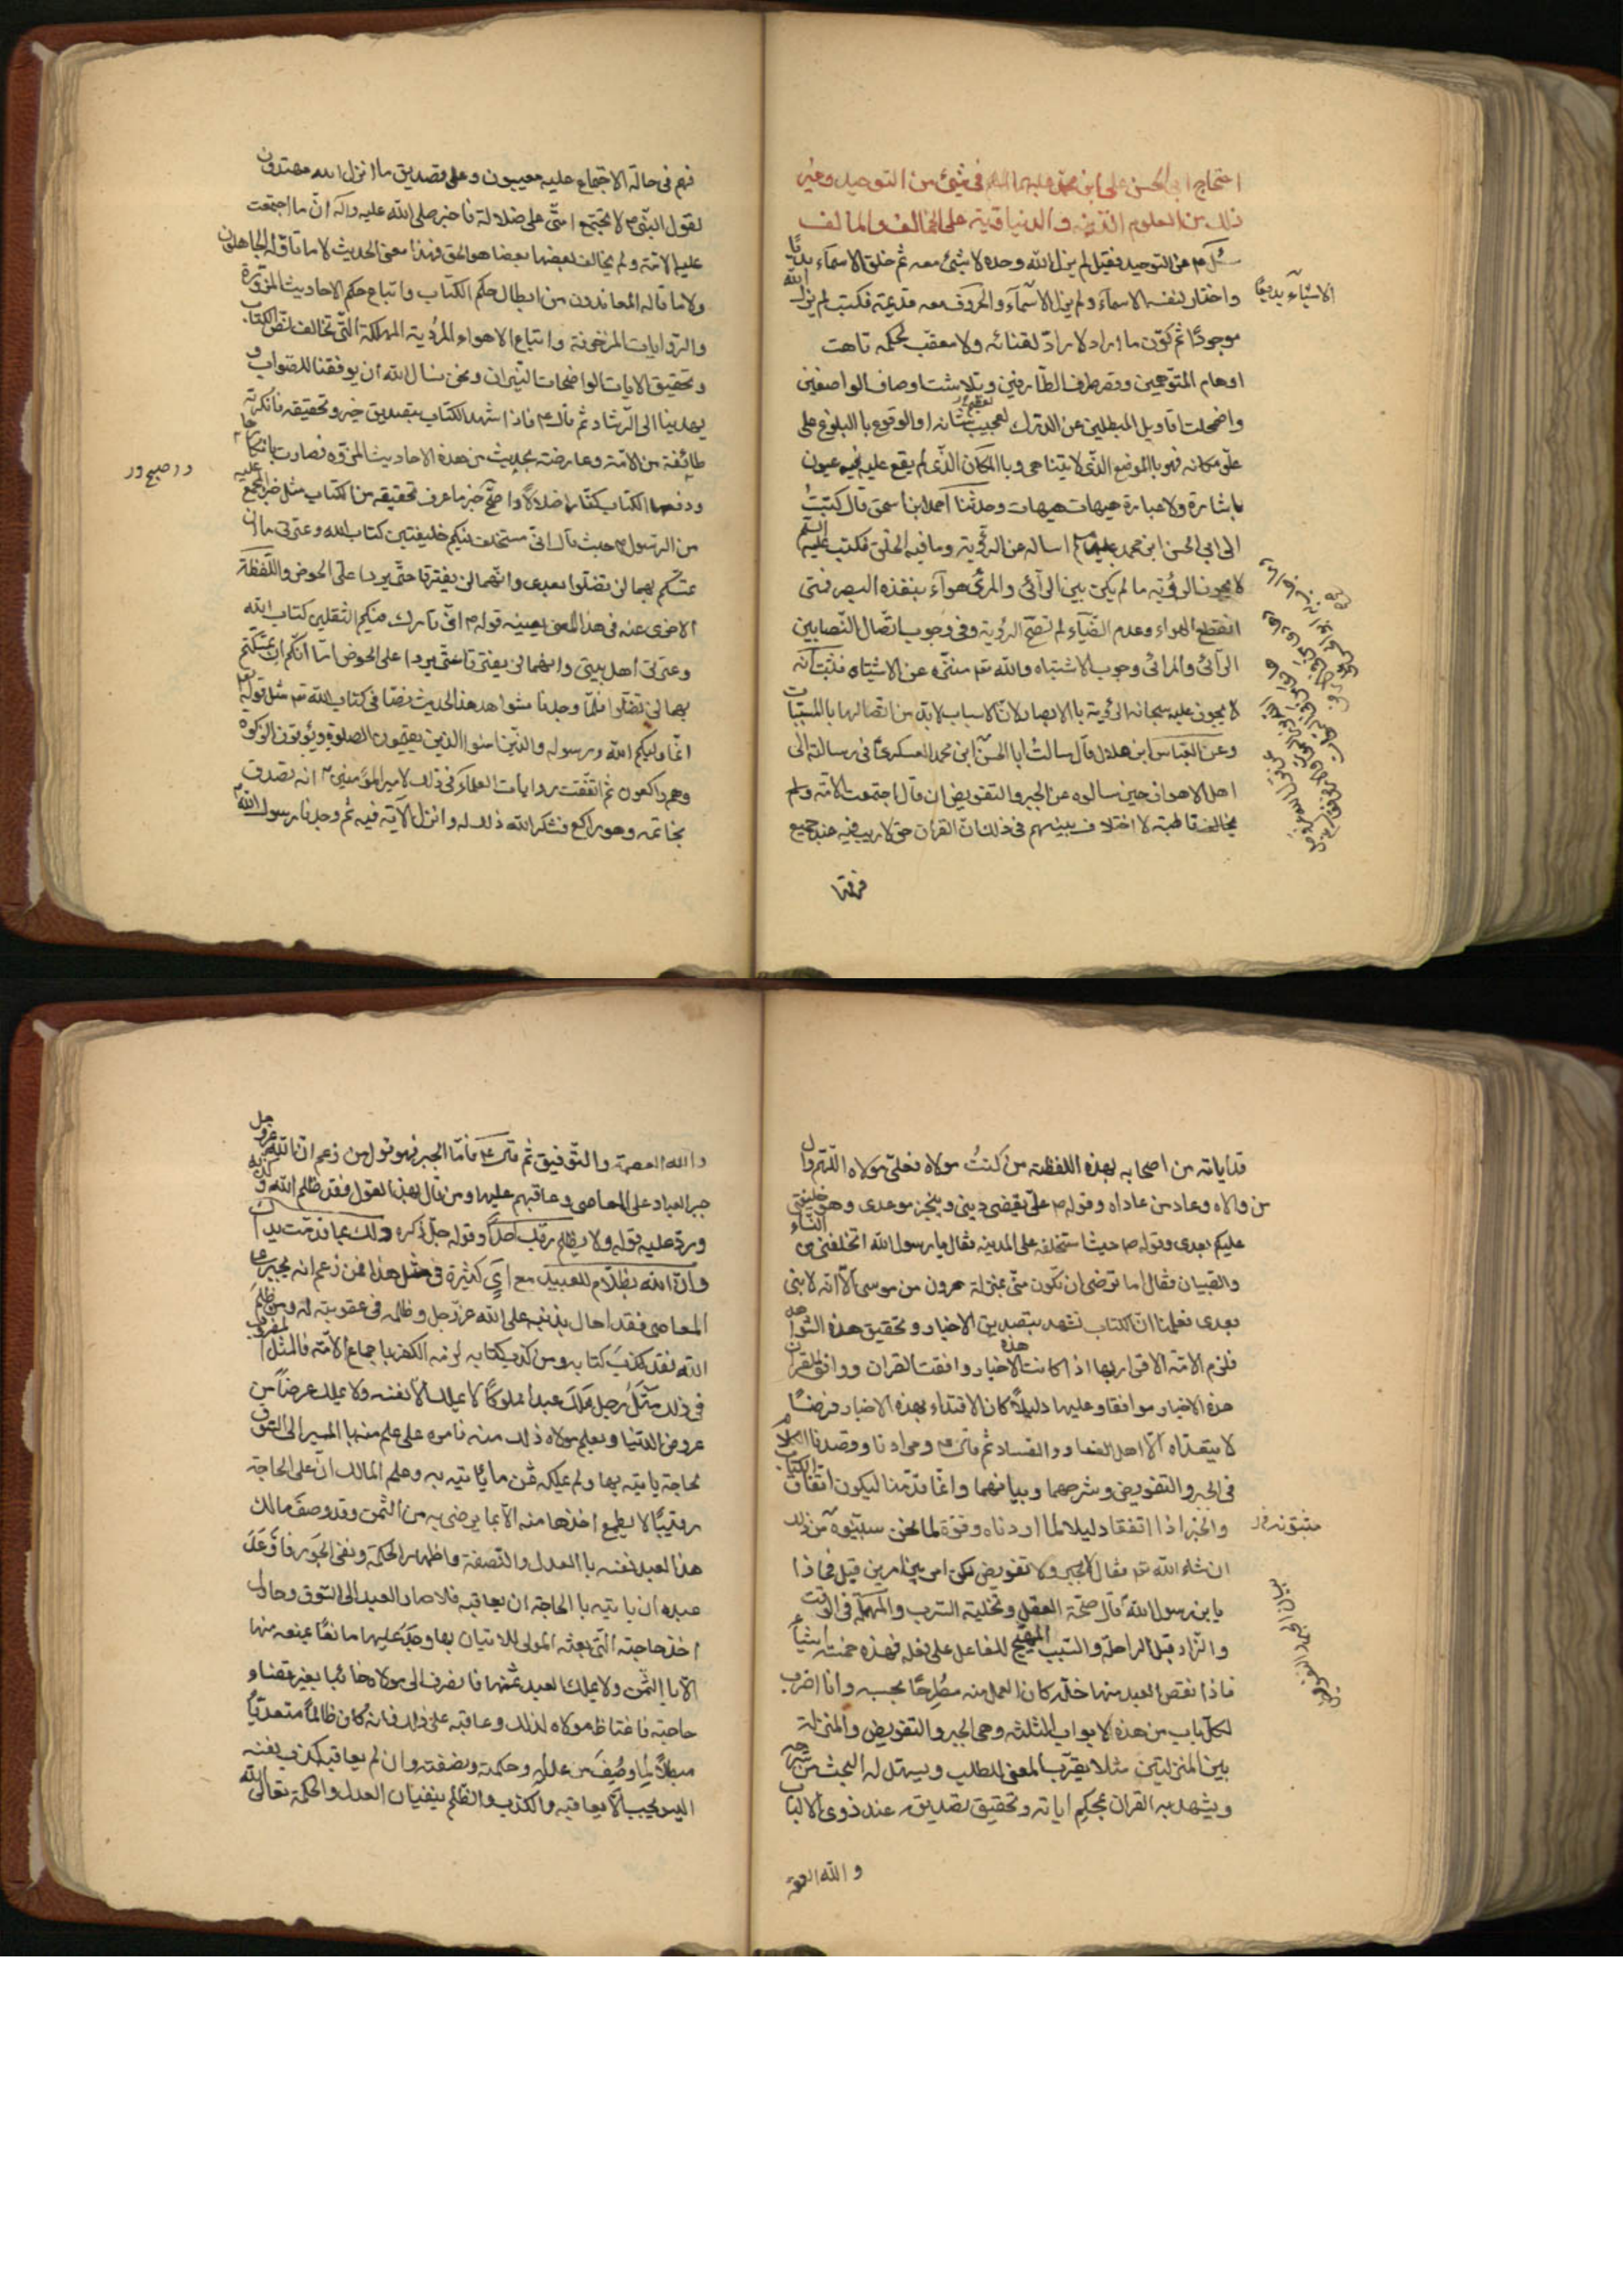 احتجاج ابي الحسن علي ابن محمد عليهما السلم في شئ من التوحيد وغير
ذلك من العلوم الدينيه والدنياويه على المخالف والمالف
سئل ع من التوحيد فقيل لم يزل الله وحده لا شئ معه ثم خلق الاسماء بديًا
الاشياء بديعًا
واختار لنفسه الاسماء ولم يزل الاسماء والحروف معه قديمة فكتب لم يزل الله
موجودًا ثم كوّن ما اراد لا رادّ لقضائه ولا معقب لحكمه تاهت
اوهام المتوهمين وقصر طرف الطارفين وتلاشت اوصاف الواصفين
واضمحلت اقاويل المبطلين عن الدرك لعجيب شانه او الوقوع بالبلوغ على
علو مكانه فهو بالموضع الذي لا يتناهى وبالمكان الذي لم يقع عليه فيه عيون
باشارة ولا عبارة هيهات هيهات وحدثنا احمد ابن اسحق قال كتبتُ
الى ابي الحسن ابن محمد عليهما السلم اساله عن الرؤية وما فيه الخلق فكتب عليه السلم
لا يجوز الرؤية ما لم يكن بين الرآئي والمرئي هوآء ينفذه البصر فمتى
انقطع الهواء وعدم الضيآء لم تصح الرؤية وفي وجوب اتصال الضيابين
الرآئي والمرائي وجوب الاشتباه والله تع منزه عن الاشتباه فثبت انه
لا يجوز عليه سبحانه الرؤية بالابصار لان الاسباب لا بد من اتصالها بالمسببات
وعن العباس ابن هلال قال سالتُ ابا الحسن ابن محمد العسكري في رسالته الى
اهل الاهواز حين سالوه عن الجبر والتفويض ان قال اجتمعت الامة ولم
يخالف قاطبة لا اختلاف بينهم في ذلك ان القران حق لا ريب فيه عند جميع
فرقها
فهم في حالة الاجتماع عليه مصيبون وعلى تصديق ما انزل الله مهتدون
لقول النبي ص لا تجتمع امتي على ضلالة فاخبر صلى الله عليه واله ان ما اجتمعت
عليه الامة ولم يخالف بعضها بعضا هو الحق فهذا معنى الحديث لا ما تاوّله الجاهلون
ولا ما قاله المعاندون من ابطال حكم الكتاب واتباع حكم الاحاديث المزوّرة
والروايات المزخرفة واتباع الاهواء المردية المهلكة التي تخالف نص الكتاب
وتحقيق الايات الواضحات النيران ونحن نسال الله ان يوفقنا للصواب و
يهدينا الى الرشاد ثم قال ع فاذا شهد الكتاب بتصديق خبر وتحقيقه فانكرته
طائفة من الامة وعارضته بحديث من هذه الاحاديث المزوّره فصارت بانكارها
ودفعها الكتاب كفارا ضلالاً واصح خبر ما عرف تحقيقه من الكتاب مثل خبر المجمع عليه
من الرسول ص حيث قال اني مستخلف فيكم خليفتين كتاب الله وعترتى ما ان
تمسكتم بهما لن تضلوا بعدى وانهما لن يفترقا حتى يردا على الحوض واللفظة
الاخرى عنه في هذا المعنى بعينه قوله ص اني تارك فيكم الثقلين كتاب الله
وعترتي اهل بيتى وانهما لن يفترقا حتى يردا على الحوض اما انكم ان تمسكتم
بهما لن تضلوا فلما وجدنا شواهد هذا الحديث نصا في كتاب الله تع مثل قوله تع
انما وليكم الله ورسوله والذين امنوا الذين يقيمون الصلوة ويؤتون الزكوة
وهم راكعون ثم اتفقت روايات العلماء في ذلك لامير المؤمنين ع انه تصدق
بخاتمه وهو راكع فشكر الله ذلك له وانزل الآية فيه ثم وجدنا رسول الله ص
قد ابانه من اصحابه بهذه اللفظة من كنتُ مولاه فعلي مولاه اللهم وال
من والاه وعاد من عاداه وقوله ص علي يقضي ديني وينجز موعدى وهو خليفتي
عليكم بعدى وقوله ص حيث استخلفه على المدينه فقال يا رسول الله اتخلفنى من النساء
والصبيان فقال اما ترضى ان تكون مني بمنزلة هرون من موسى الا انه لا نبى
بعدى فعلمنا ان الكتاب شهد بتصديق الاخبار وتحقيق هذه الشواهد
فلزم الامة الاقرار بها اذا كانت هذه الاخبار وافقت القران ووافق القران
هذه الاخبار موافقا وعليها دليلاً كان الاقتداء بهذه الاخبار فرضًا
لا يتعداه الا اهل العناد والفساد ثم قال ع ومرادنا وقصدنا الكلام
في الجبر والتفويض وشرحهما وبيانهما وانما قدمنا ليكون اتفاق الكتاب
والخبر اذا اتفقا دليلا لما اردناه وقوة لما نحن مبينوه من ذلك
ان شاء الله تع فقال لا جبر ولا تفويض لكن امر بين امرين قيل فماذا
يا ابن رسول الله قال صحة العقل وتخلية السرب والمهلة في الوقت
والزاد قبل الراحلة والسبب المهيّج للفاعل على فعله فهذه خمسة اشياء
فاذا نقص العبد منها خلّة كان العمل منه مطرحًا بحسبه وانا اضرب
لكل باب من هذه الابواب الثلثة وهي الجبر والتفويض والمنزلة
بين المنزلتين مثلا يقرّب المعنى للطلب ويسهل له البحث من شرحه
ويشهد به القران بمحكم اياته وتحقيق تصديقه عند ذوى الالباب
والله العصمة
والله العصمة والتوفيق ثم قال ع فاما الجبر فهو قول من زعم ان الله عزوجل
جبر العباد على المعاصى وعاقبهم عليها ومن قال بهذا القول فقد ظلم الله وكذبه
وردّ عليه قوله ولا يظلم ربك احدًا وقوله جل ذكره ذلك بما قدمت يداك
وان الله بظلام للعبيد مع آي كثيرة في مثل هذا فمن زعم انه مجبر على
المعاصى فقد احال بذنبه على الله عز وجل وظلمه في عقوبته له ومن ظلم
الله فقد كذب كتابه ومن كذب كتابه لزمه الكفر باجماع الامة فالمثل المضروب
في ذلك مَثَلُ رجلٍ مَلَكَ عبدًا مملوكًا لا يملك الا نفسه ولا يملك عرضاً من
عروض الدنيا ويعلم مولاه ذلك منه فامره على علم منه بالمسير الى السوق
لحاجة ياتيه بها ولم يملكه ثمن ما ياتيه به وعلم المالك ان على الحاجة
رقيبًا لا يطمع اخذها منه الا بما يرضى به من الثمن وقد وصف مالك
هذا العبد نفسه بالعدل والنصفة واظهار الحكمة ونفى الجور فاوعَدَ
عبده ان ياتيه بالحاجة ان يعاقبه فلما صار العبد الى السوق وحاول
اخذ حاجته التي بعثه المولى للاتيان بها وجد عليها مانعًا يمنعه منها
الا بالثمن ولا يملك العبد ثمنها فانصرف الى مولاه خائبا بغير قضاء
حاجته فاغتاظ مولاه لذلك وعاقبه على ذلك فانه كان ظالماً متعديًا
مبطلاً لما وصَفَ من عدله وحكمته ونصفته وان لم يعاقبه كذب نفسه
اليس يجب الا يعاقبه والكذب والظلم ينفيان العدل والحكمة تعالى الله